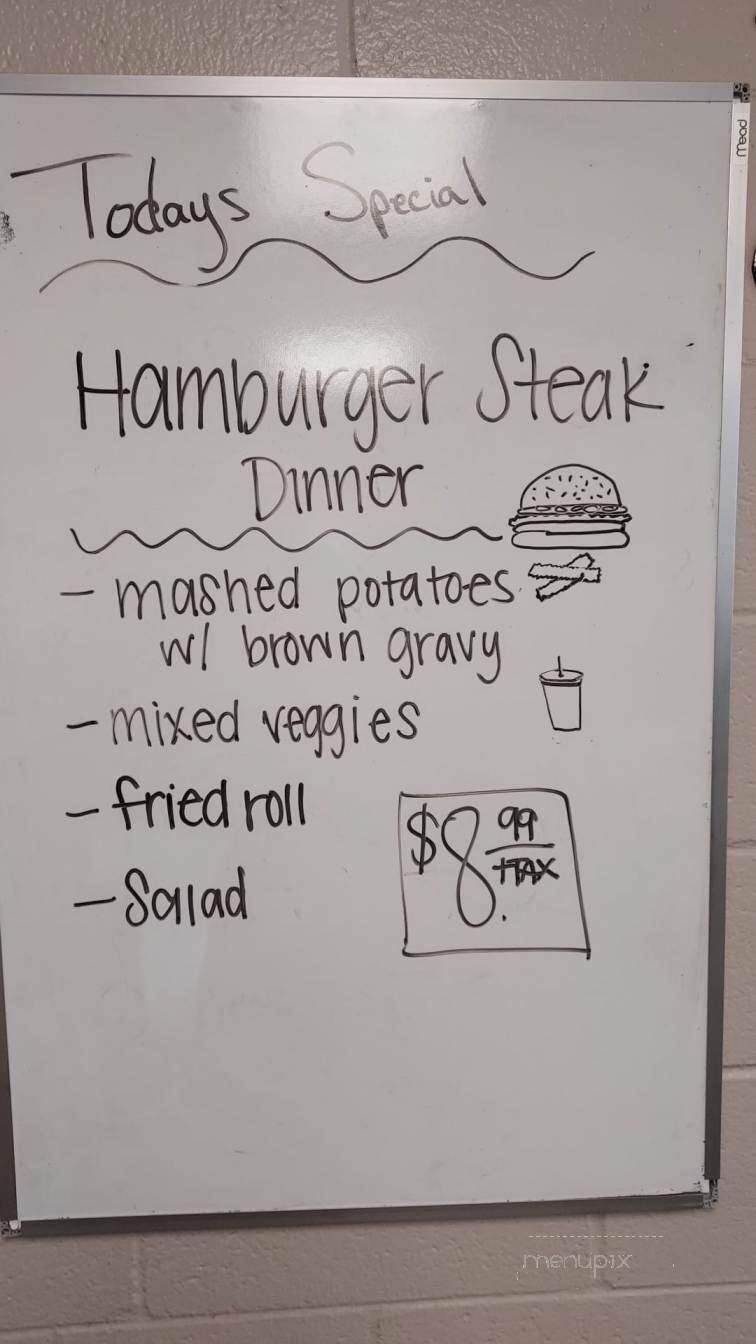 Todays Special
Hamburger Steak
Dinner
- mashed potatoes
w/ brown gravy
- mixed veggies
- fried roll
- Salad
$8.99
+TAX
mead
menupix